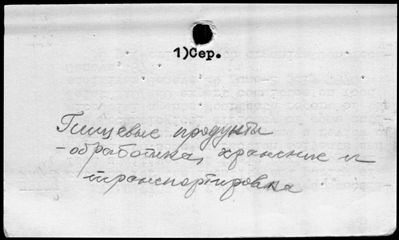 1)Сер.
Пищевые продукты
- обработка, хранение и
транспортировка